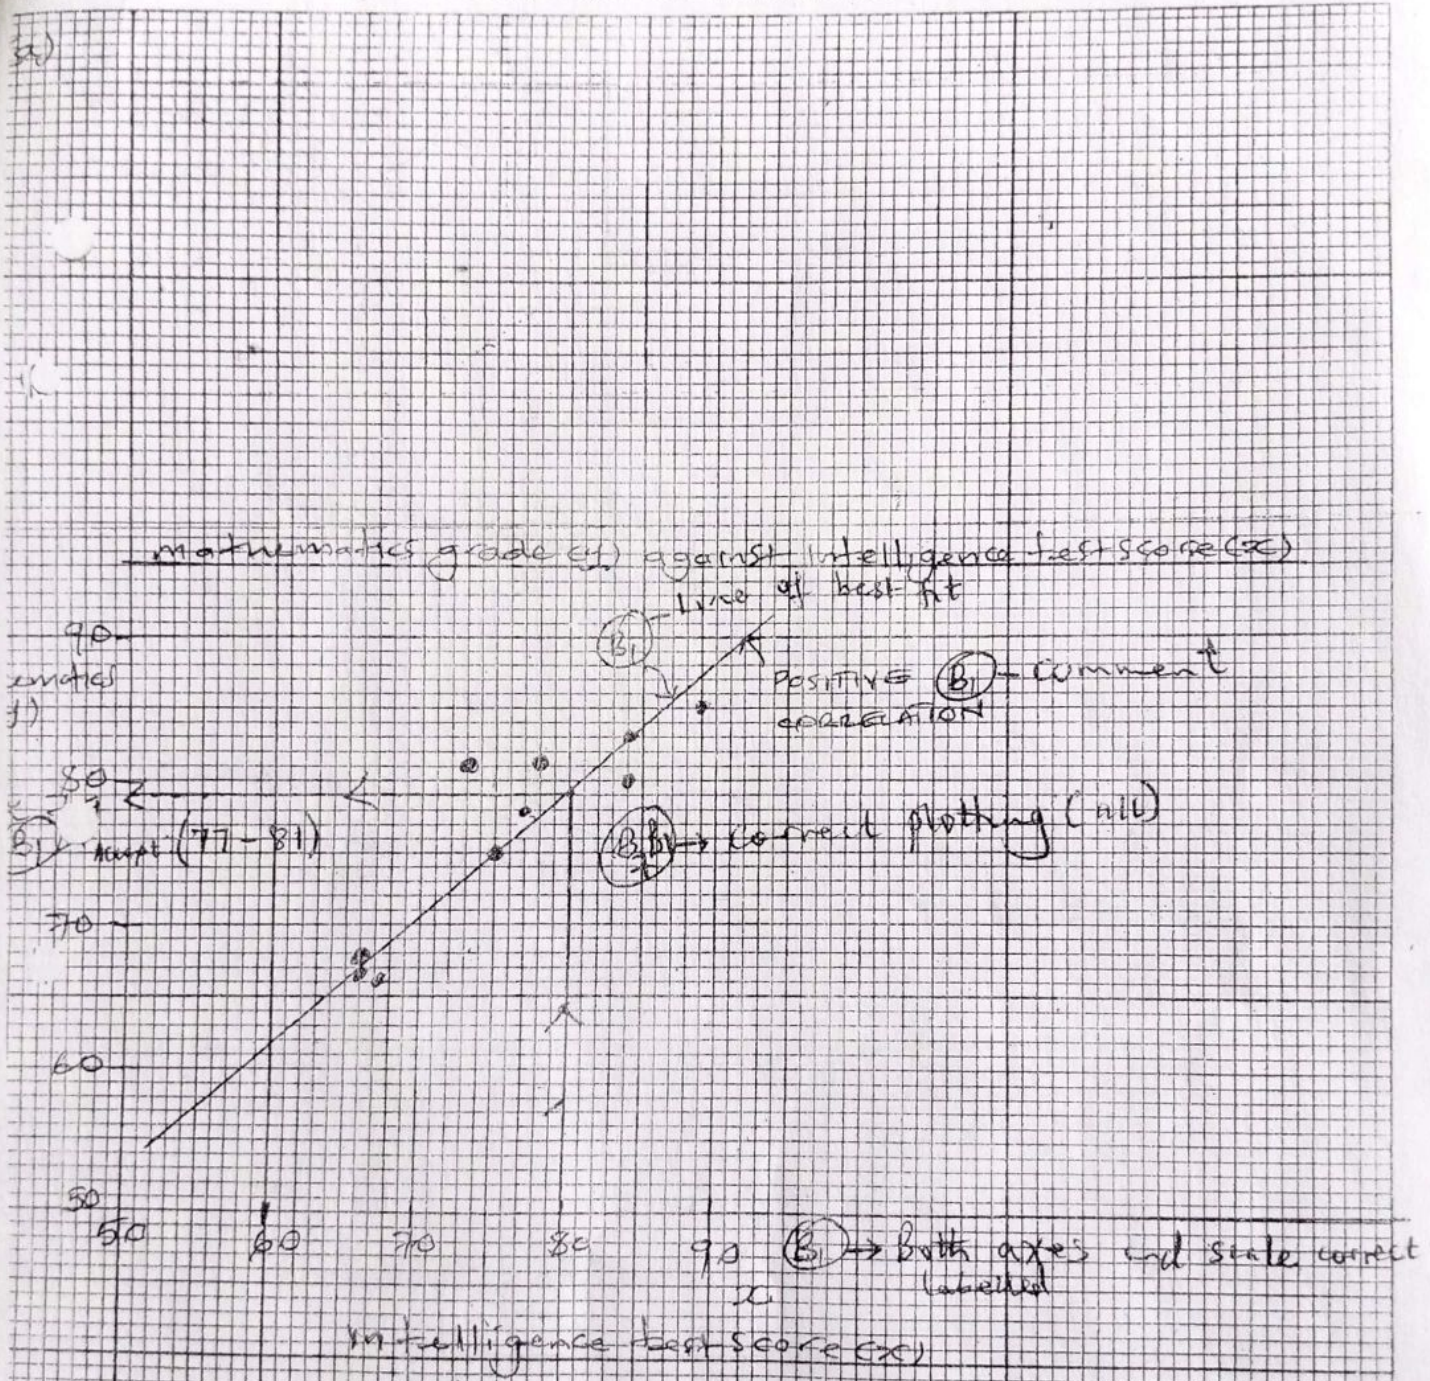 a)
mathematics grade (y) against intelligence test score (x)
Line of best fit
B1
90
ematics
y)
POSITIVE B1 - comment
CORRELATION
80
B1 Accept (77-81)
B1 → correct plotting (all)
70
60
50
50 60 70 80 90 B1 → Both axes and scale correct
labelled
x
intelligence test score (x)